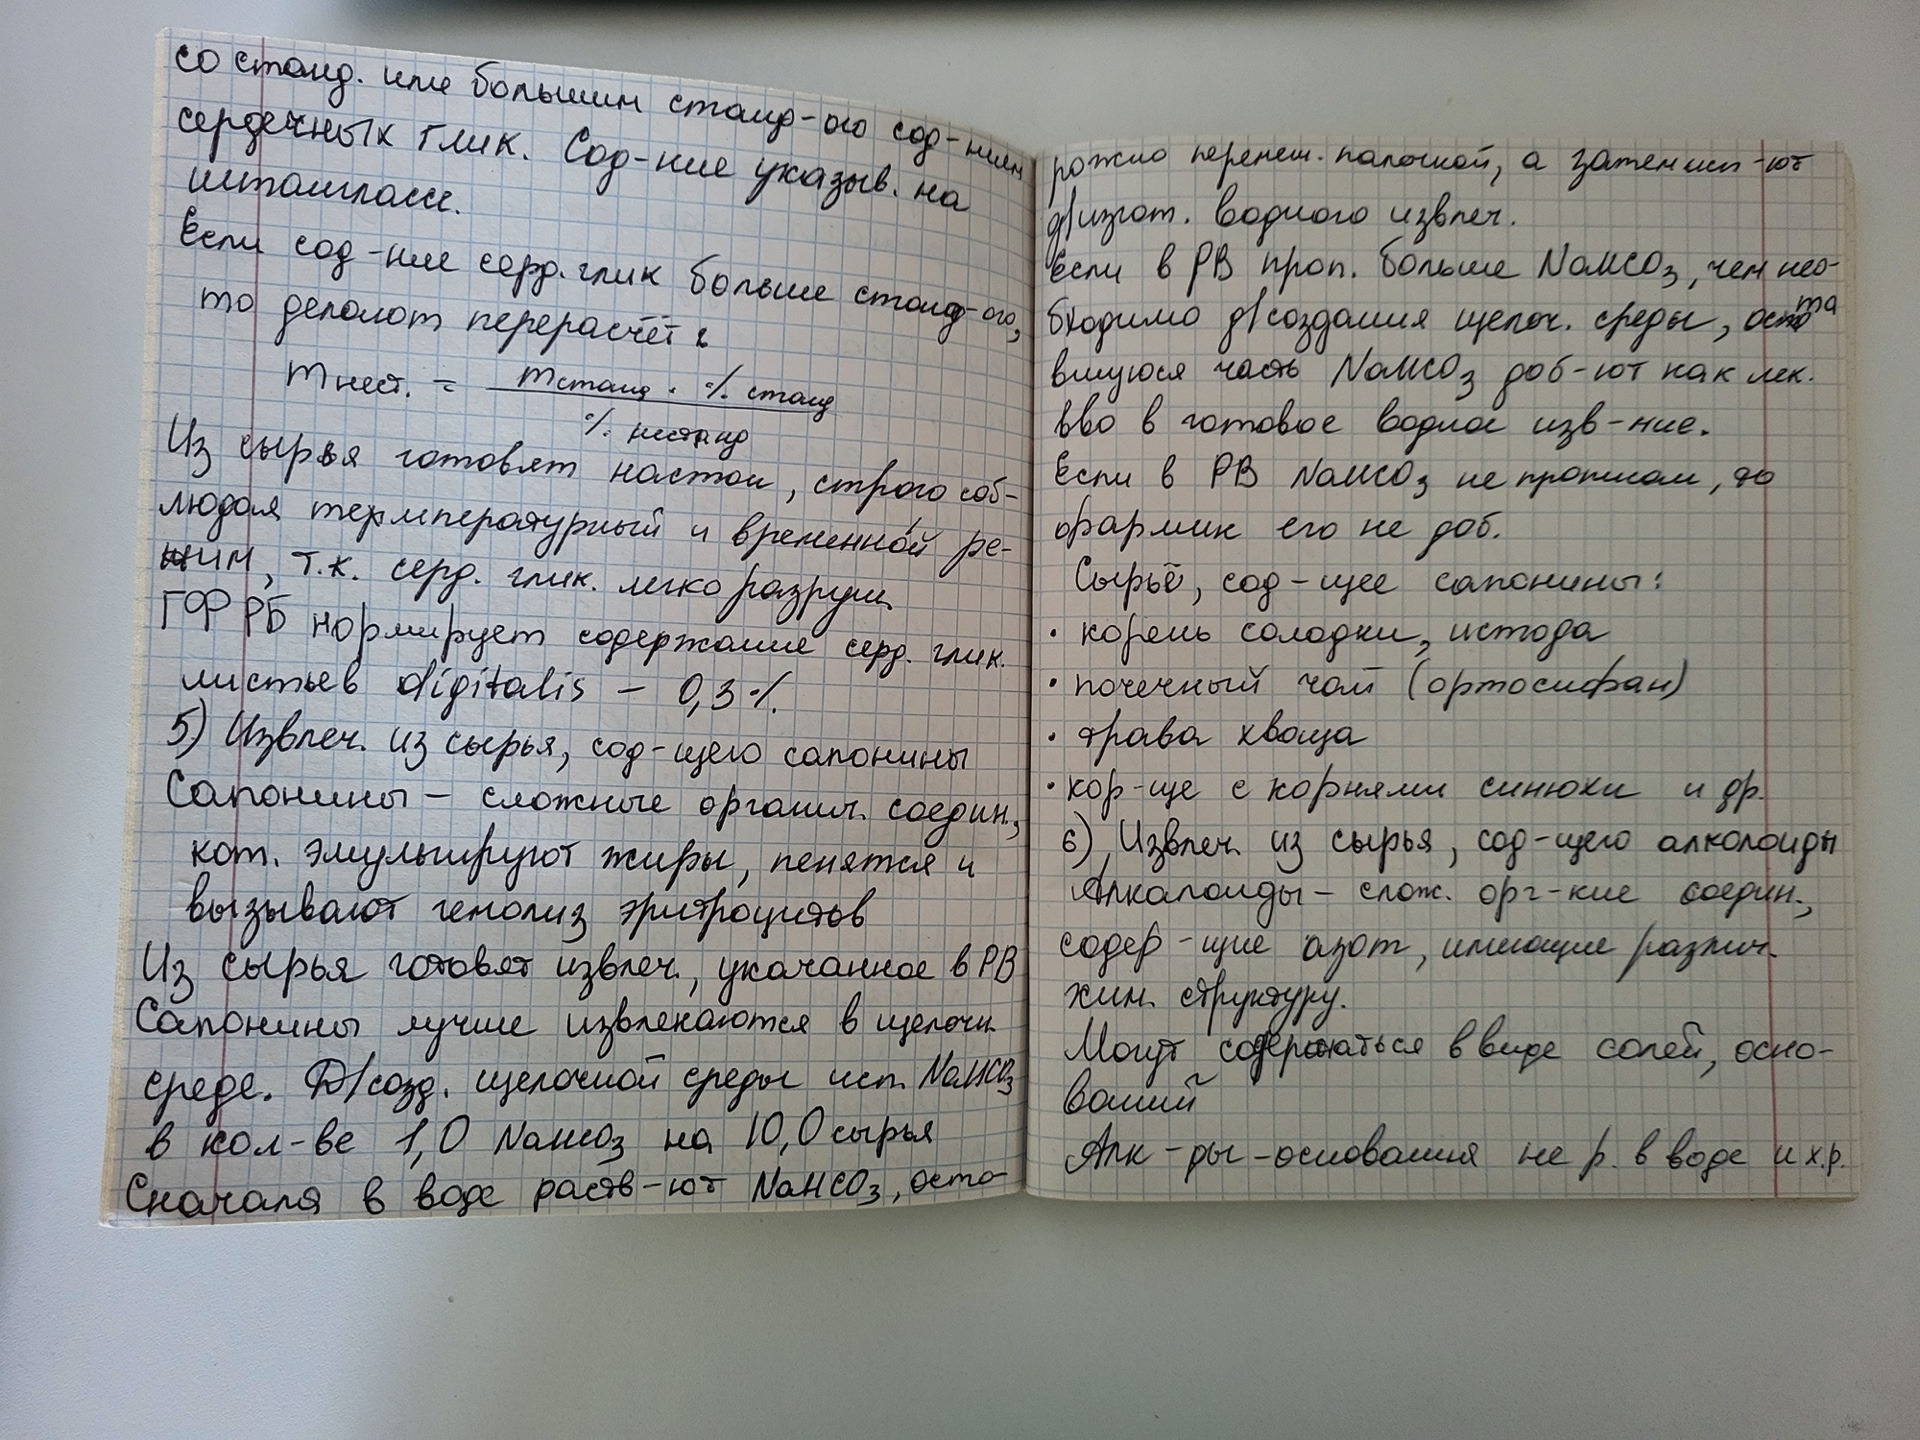 со станд. или большим станд-ого сод-нием
сердечных глик. Сод-ние указыв. на
штангласе.
Если сод-ние серд. глик больше станд-ого,
то делают перерасчёт:
mнест. = mстанд · % станд
% нестанд
Из сырья готовят настои, строго соб-
людая температурный и временной ре-
жим, т.к. серд. глик. легко разруш.
ГФ РБ нормирует содержание серд. глик.
листьев digitalis – 0,3 %
5) Извлеч. из сырья, сод-щего сапонины
Сапонины – сложные органич. соедин.,
кот. эмульгируют жиры, пенятся и
вызывают гемолиз эритроцитов
Из сырья готовят извлеч., указанное в РВ
Сапонины лучше извлекаются в щелочн.
среде. Д/созд. щелочной среды исп. NaHCO₃
в кол-ве 1,0 NaHCO₃ на 10,0 сырья
Сначала в воде раств-ют NaHCO₃, осто-
рожно перемеш. палочкой, а затем исп-ют
д/изгот. водного извлеч.
Если в РВ проп. больше NaHCO₃, чем нео-
бходимо д/создания щелоч. среды, оста
вшуюся часть NaHCO₃ доб-ют как лек.
вво в готовое водное изв-ние.
Если в РВ NaHCO₃ не прописан, то
фармик его не доб.
Сырьё, сод-щее сапонины:
· корень солодки, истода
· почечный чай (ортосифан)
· трава хвоща
· кор-ще с корнями синюхи и др.
6) Извлеч. из сырья, сод-щего алколоиды
Алкалоиды – слож. орг-кие соедин.,
содер-щие азот, имеющие различ.
хим. структуру.
Могут содержаться в виде солей, осно-
ваний
Алк-ды-основания не р. в воде и х.р.